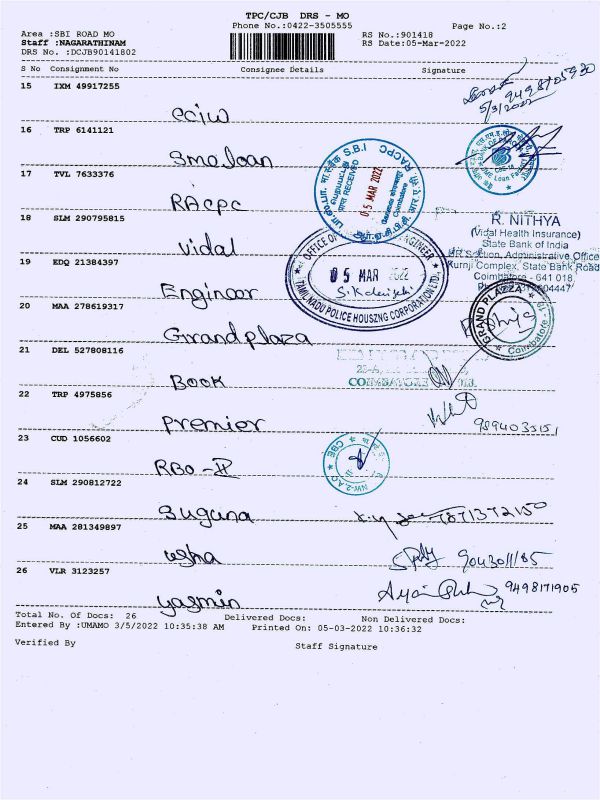 TPC/CJB DRS - MO
Phone No.:0422-3505555
Page No.:2
Area :SBI ROAD MO
RS No.:901418
Staff :NAGARATHINAM
RS Date:05-Mar-2022
DRS No. :DCJB90141802
S No Consignment No Consignee Details Signature
15 IXM 49917255
9498705930
5/3/2022
eciw
16 TRP 6141121
Smeloan
17 TVL 7633376
S.B.I RACPC
RECEIVED
05 MAR 2022
Coimbatore
RACPC
18 SLM 290795815
R. NITHYA
(Vidal Health Insurance)
State Bank of India
HR Section, Administrative Office
Kurnji Complex, State Bank Road
Coimbatore - 641 018
Vidal
19 EDQ 21384397
OFFICE OF ENGINEER
05 MAR 2022
TAMILNADU POLICE HOUSZNG CORPORATION LTD.
Engineer
20 MAA 278619317
GRAND PLAZA
Coimbatore
Grandplaza
21 DEL 527808116
COIMBATORE
Book
22 TRP 4975856
Premier
9894035151
23 CUD 1056602
CBE
NW-2, A.O
RBO-II
24 SLM 290812722
Suguna
7871372150
25 MAA 281349897
usha
9043011185
26 VLR 3123257
yasmin
9498171905
Total No. Of Docs: 26 Delivered Docs: Non Delivered Docs:
Entered By :UMAMO 3/5/2022 10:35:38 AM Printed On: 05-03-2022 10:36:32
Verified By
Staff Signature